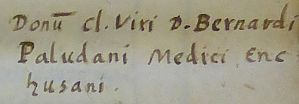 Donū cl. Viri D. Bernardi
Paludani Medici Enc
husani.